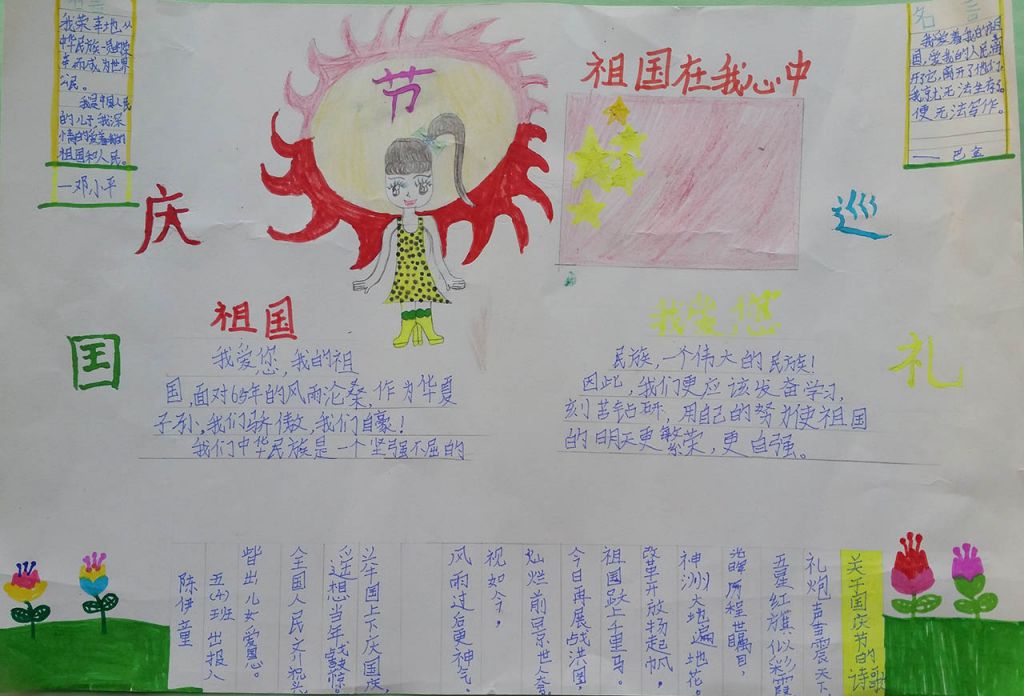 名言
我荣幸地从
中华民族一员的资
格而成为世界
公民。
我是中国人民
的儿子我深
情的爱着我的
祖国和人民。
—邓小平
节
祖国在我心中
名言
我爱着我的祖
国,爱我的人民,离
开了它,离开了他们,
我就无法生存,
便无法写作。
——巴金
庆
巡
国
礼
祖国
我爱您,我的祖
国,面对65年的风雨沧桑,作为华夏
子孙,我们骄傲,我们自豪!
我们中华民族是一个坚强不屈的
我爱您
民族,一个伟大的民族!
因此,我们更应该发奋学习,
刻苦钻研,用自己的努力使祖国
的明天更繁荣,更自强。
关于国庆节的诗歌
礼炮声声震天
五星红旗似彩霞
瞩目,
神洲大地遍地花。
改革开放扬起帆,
祖国跃上千里马。
今日再展战洪图,
灿烂前景世人夸
视如今,
风雨过后更神气。
举国上下庆国庆,
遥想当年
全国人民齐祝
皆出儿女爱恩。
五(4)班出报人
陈伊童